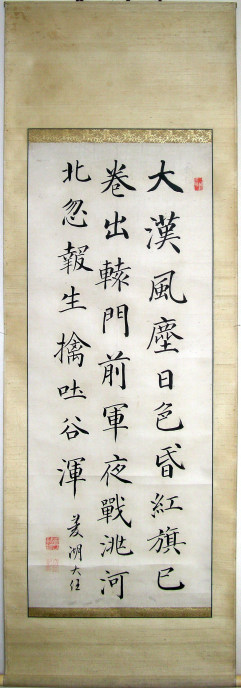 大漢風塵日色昏紅旗已
卷出轅門前軍夜戰洮河
北忽報生擒吐谷渾
菱湖大任